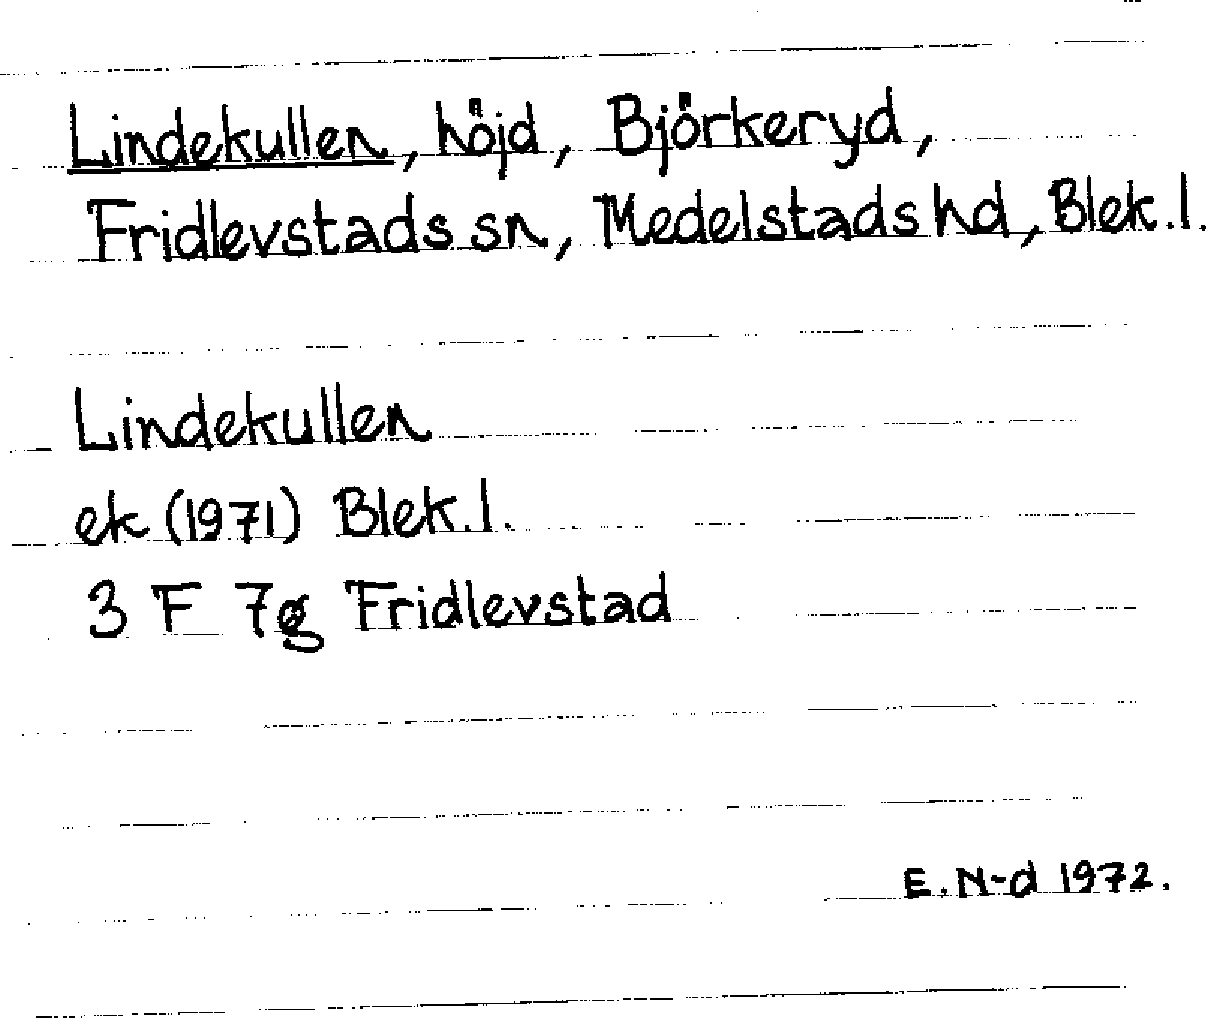 Lindekullen, höjd, Björkeryd,
Fridlevstads sn, Medelstads hd, Blek. l.
Lindekullen
ek (1971) Blek. l.
3 F 7g Fridlevstad
E. N-d 1972.